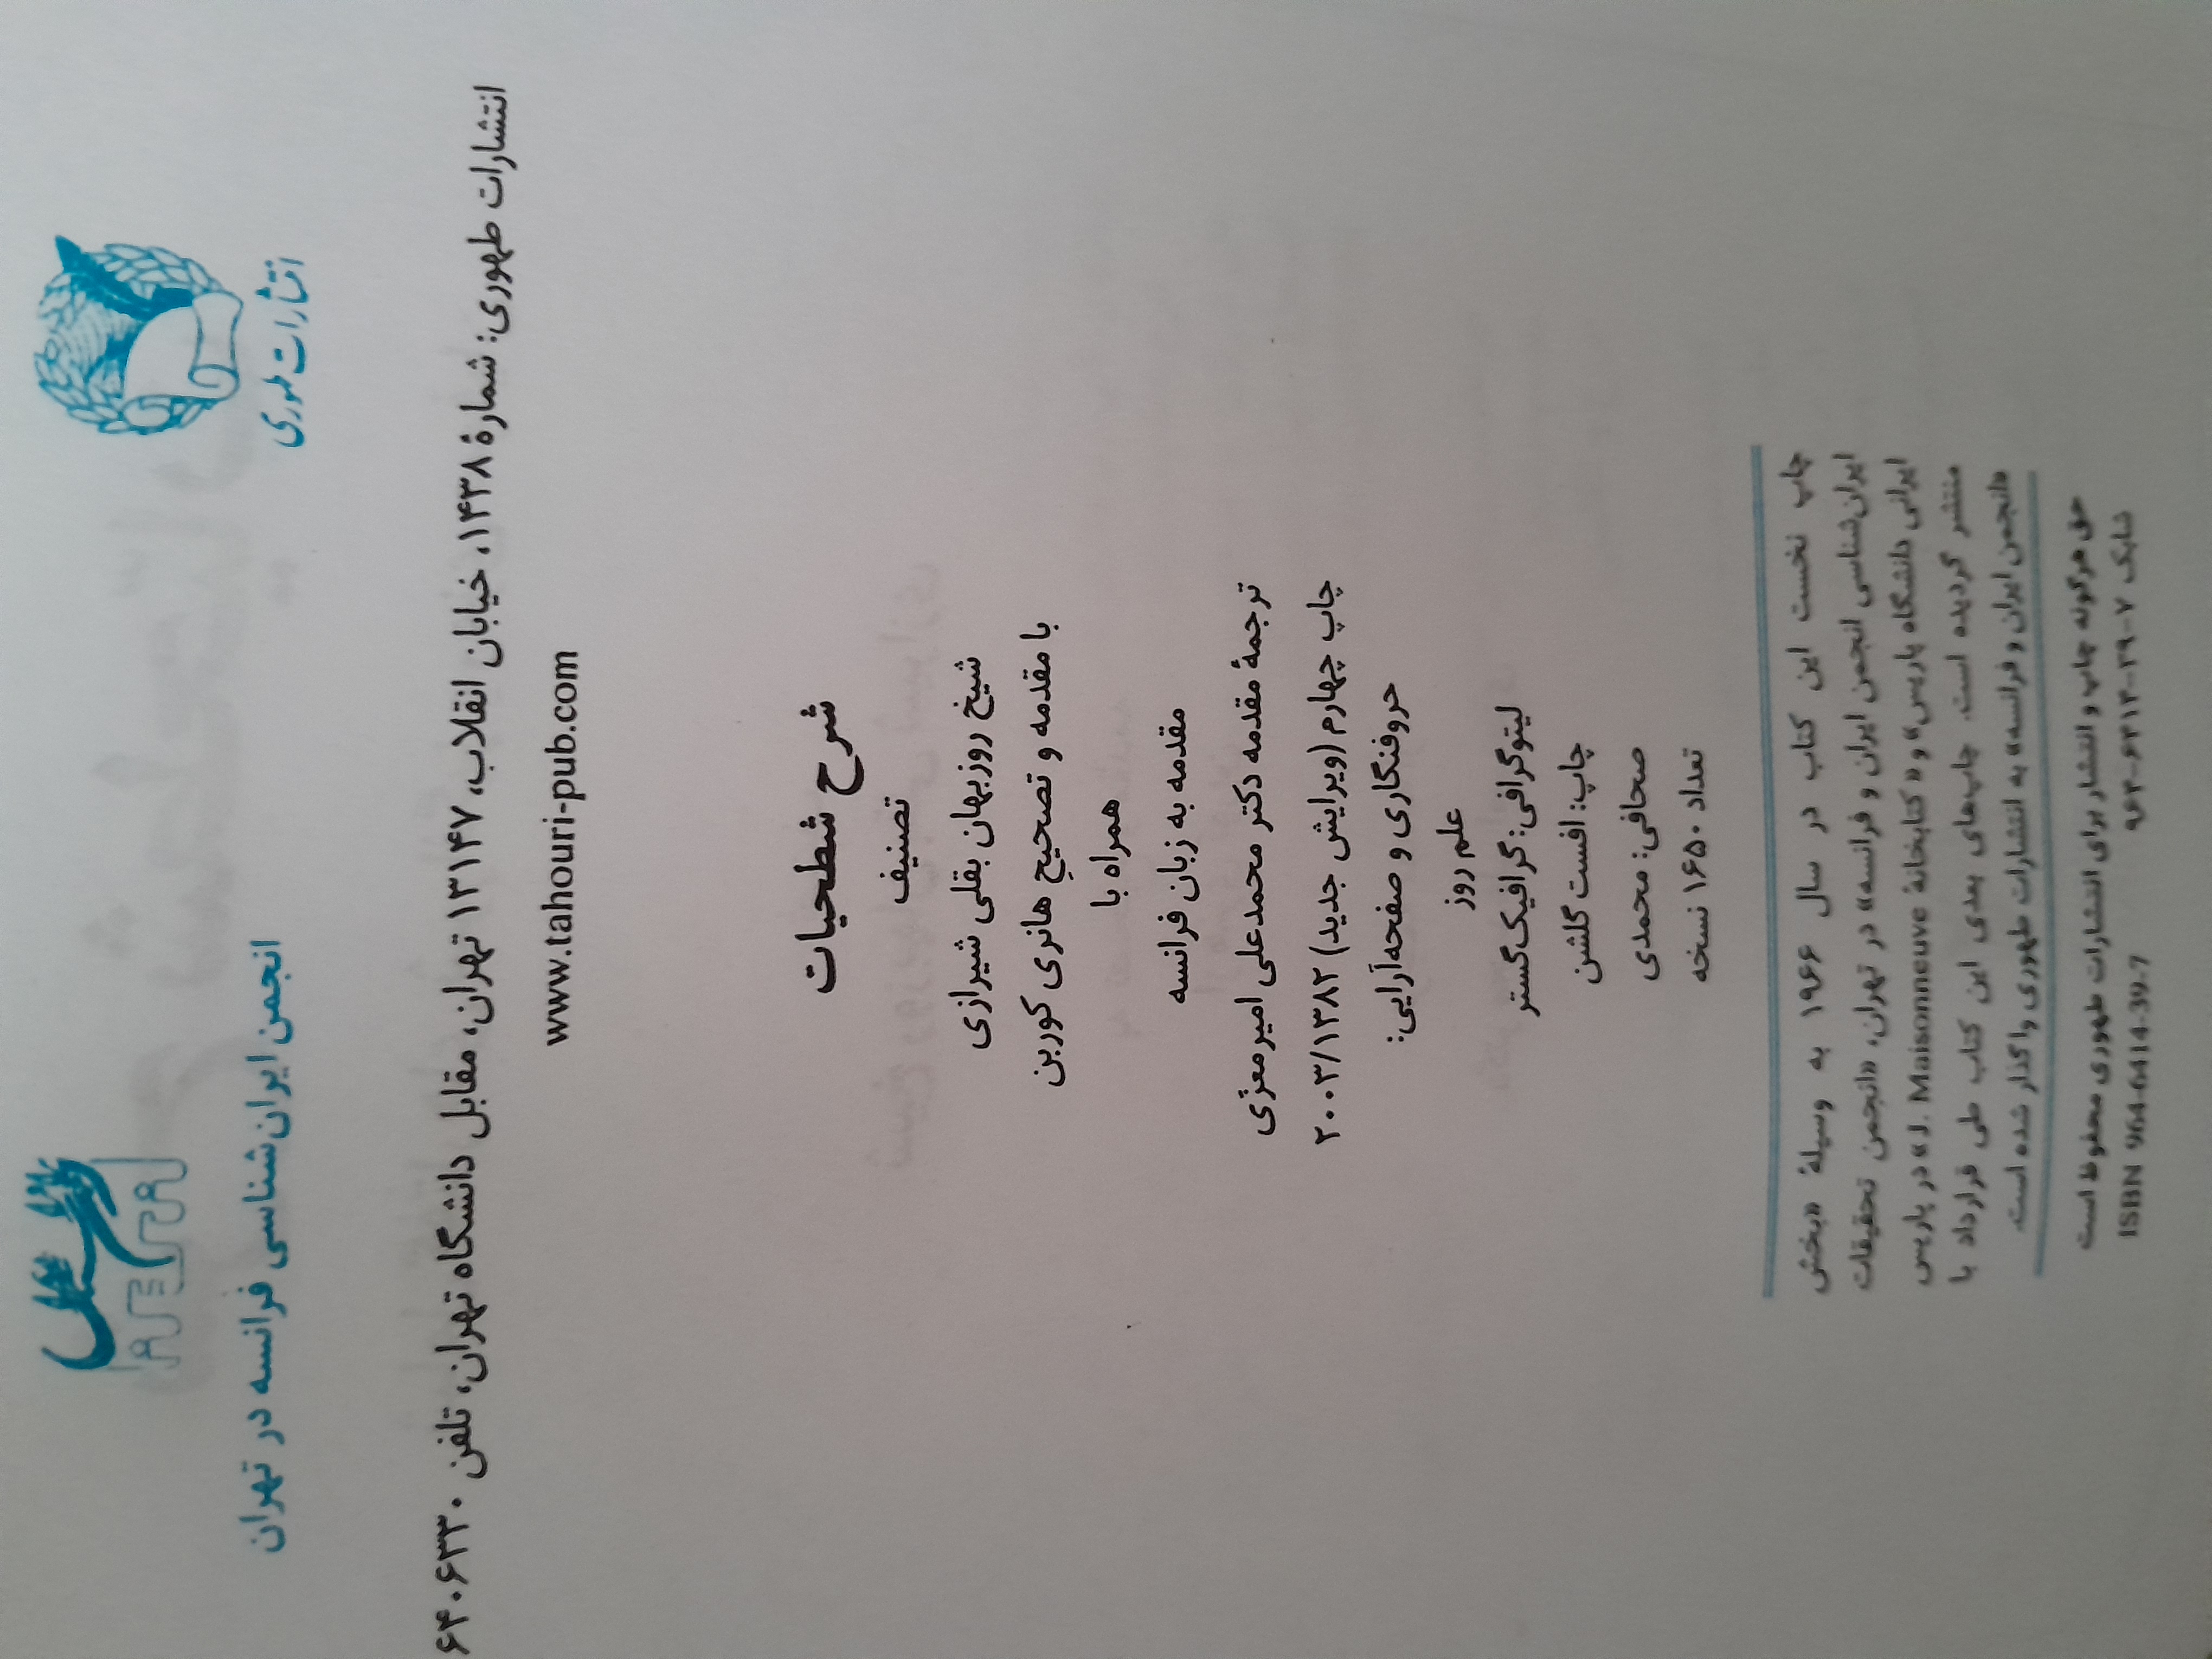 انتشارات طهوری
انجمن ایران‌شناسی فرانسه در تهران
انتشارات طهوری: شمارهٔ ۱۴۳۸، خیابان انقلاب، ۱۳۱۴۷ تهران، مقابل دانشگاه تهران، تلفن ۶۴۰۶۳۳۰
www.tahouri-pub.com
شرح شطحیات
تصنیف
شیخ روزبهان بقلی شیرازی
با مقدمه و تصحیح هانری کوربن
همراه با
مقدمه به زبان فرانسه
ترجمهٔ مقدمه دکتر محمدعلی امیرمعزّی
چاپ چهارم (ویرایش جدید) ۲۰۰۳/۱۳۸۲
حروفنگاری و صفحه‌آرایی:
علم روز
لیتوگرافی: گرافیک‌گستر
چاپ: افست گلشن
صحافی: محمدی
تعداد ۱۶۵۰ نسخه
چاپ نخست این کتاب در سال ۱۹۶۶ به وسیلهٔ «بخش
ایران‌شناسی انجمن ایران و فرانسه» در تهران، «انجمن تحقیقات
ایرانی دانشگاه پاریس» و «کتابخانهٔ J. Maisonneuve» در پاریس
منتشر گردیده است. چاپ‌های بعدی این کتاب طی قرارداد با
«انجمن ایران و فرانسه» به انتشارات طهوری واگذار شده است.
حق هرگونه چاپ و انتشار برای انتشارات طهوری محفوظ است
شابک ۷-۳۹-۶۴۱۴-۹۶۴ ISBN 964-6414-39-7